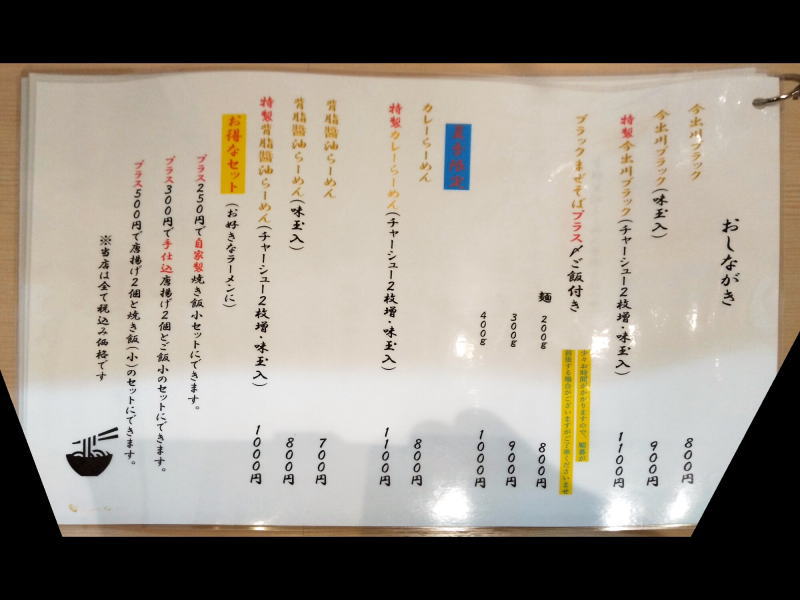 おしながき
今出川ブラック 800円
今出川ブラック(味玉入) 900円
特製今出川ブラック(チャーシュー2枚増・味玉入) 1100円
ブラックまぜそばプラス〆ご飯付き
少々お時間がかかりますので、順番が
前後する場合がございますがご了承くださいませ
麺 200g 800円
300g 900円
400g 1000円
カレーらーめん 800円
特製カレーらーめん(チャーシュー2枚増・味玉入) 1100円
背脂醤油らーめん 700円
背脂醤油らーめん(味玉入) 800円
特製背脂醤油らーめん(チャーシュー2枚増・味玉入) 1000円
お得なセット(お好きなラーメンに)
プラス250円で自家製焼き飯小セットにできます。
プラス300円で手仕込唐揚げ2個とご飯小のセットにできます。
プラス500円で唐揚げ2個と焼き飯(小)のセットにできます。
※当店は全て税込み価格です